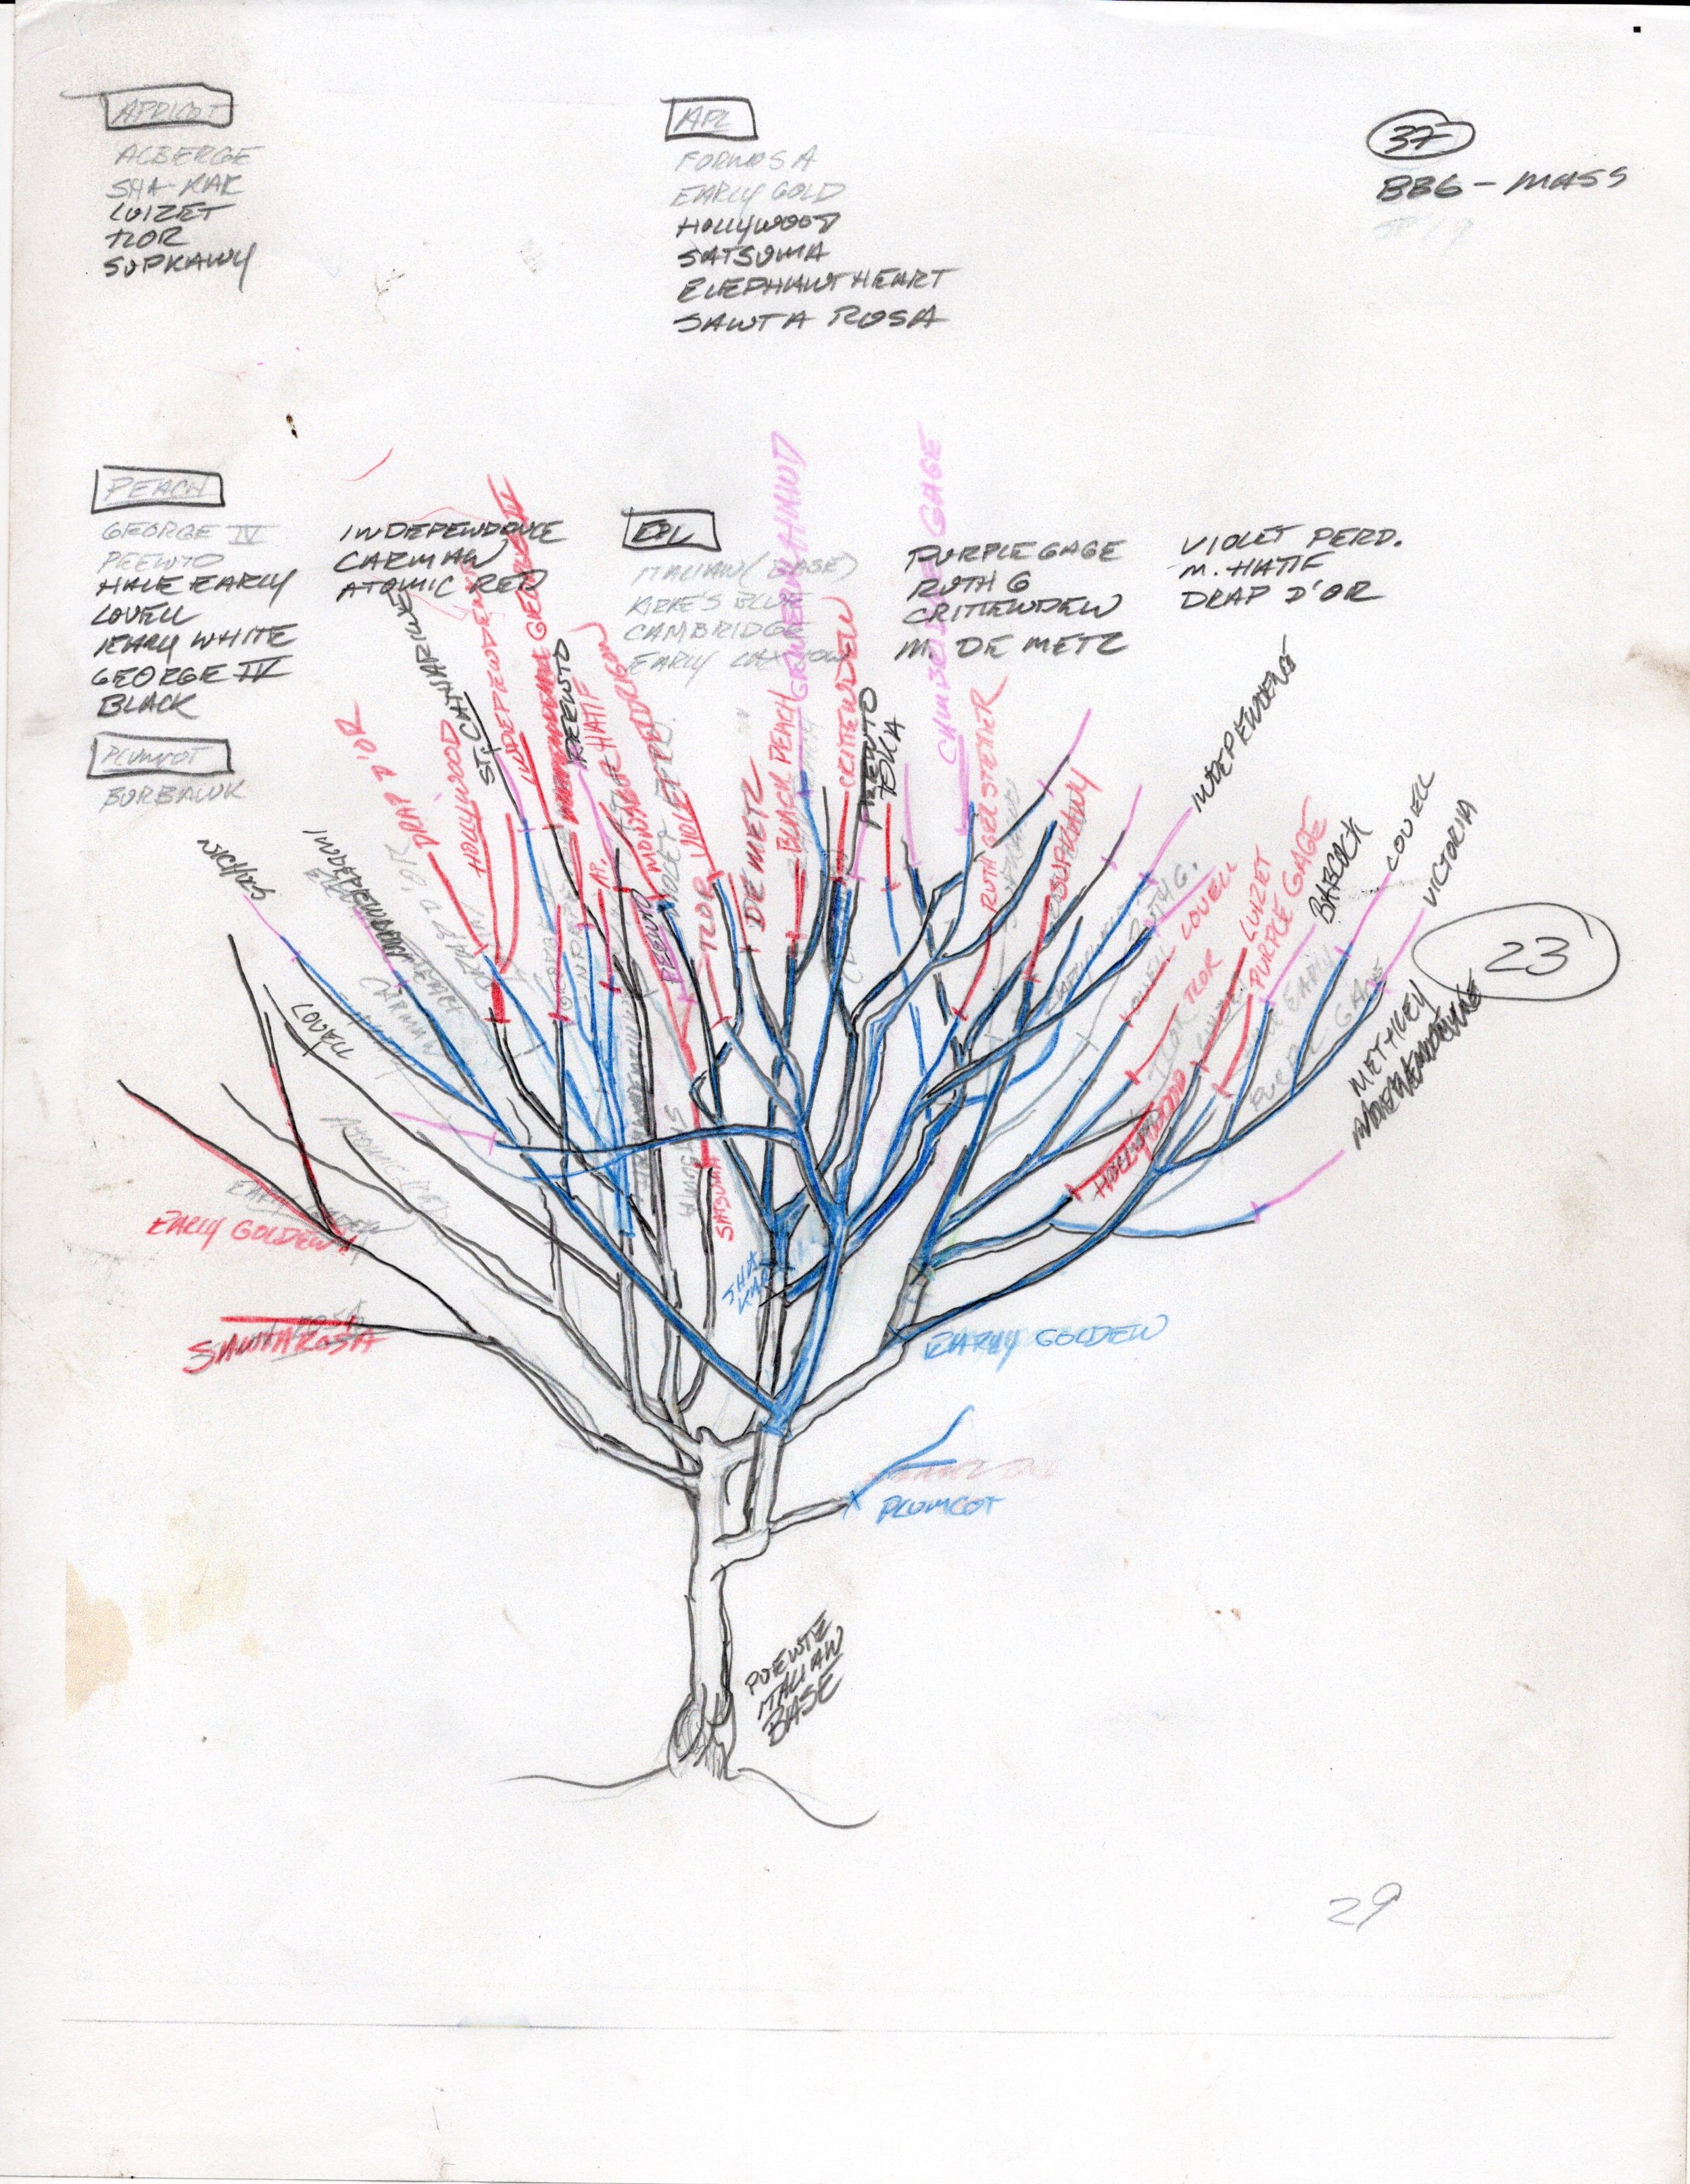 APRICOT
ALBERGE
SHA-KAR
LUIZET
TLOR
SUPKANY
APL
FORMOSA
EARLY GOLD
HOLLYWOOD
SATSUMA
ELEPHANT HEART
SANTA ROSA
37
BBG - MASS
PEACH
GEORGE IV
PEENTO
HALE EARLY
LOVELL
EARLY WHITE
GEORGE IV
BLACK
INDEPENDENCE
CARMAN
ATOMIC RED
EPL
ITALIAN (BASE)
KIRKE'S BLUE
CAMBRIDGE
EARLY LAXTON
PURPLE GAGE
RUTH G
CRITTENDEN
M. DE METZ
VIOLET PERD.
M. HATIF
DRAP D'OR
PLUMCOT
BURBANK
NICHOLS
INDEPENDENCE
CARMAN
LOVELL
DRAP D'OR
HOLLYWOOD
ST. CATHARINE
INDEPENDENCE
GEORGE IV
PEENTO
HATIF
AP.
VIOLET PERD.
PEENTO
TLOR
DE METZ
BLACK PEACH
CRITTENDEN
PEENTO
TOKA
CAMBRIDGE GAGE
RUTH GERSTETTER
SUPKANY
INDEPENDENCE
RUTH G.
LOVELL
TLOR
LUIZET
PURPLE GAGE
BABCOCK
LOVELL
VICTORIA
23
METHLEY
HOLLYWOOD
PURPLE GAGE
ATOMIC RED
EARLY GOLDEN
SANTA ROSA
SATSUMA
SHA
KAR
EARLY GOLDEN
PLUMCOT
PUENTE
ITALIAN
BASE
29